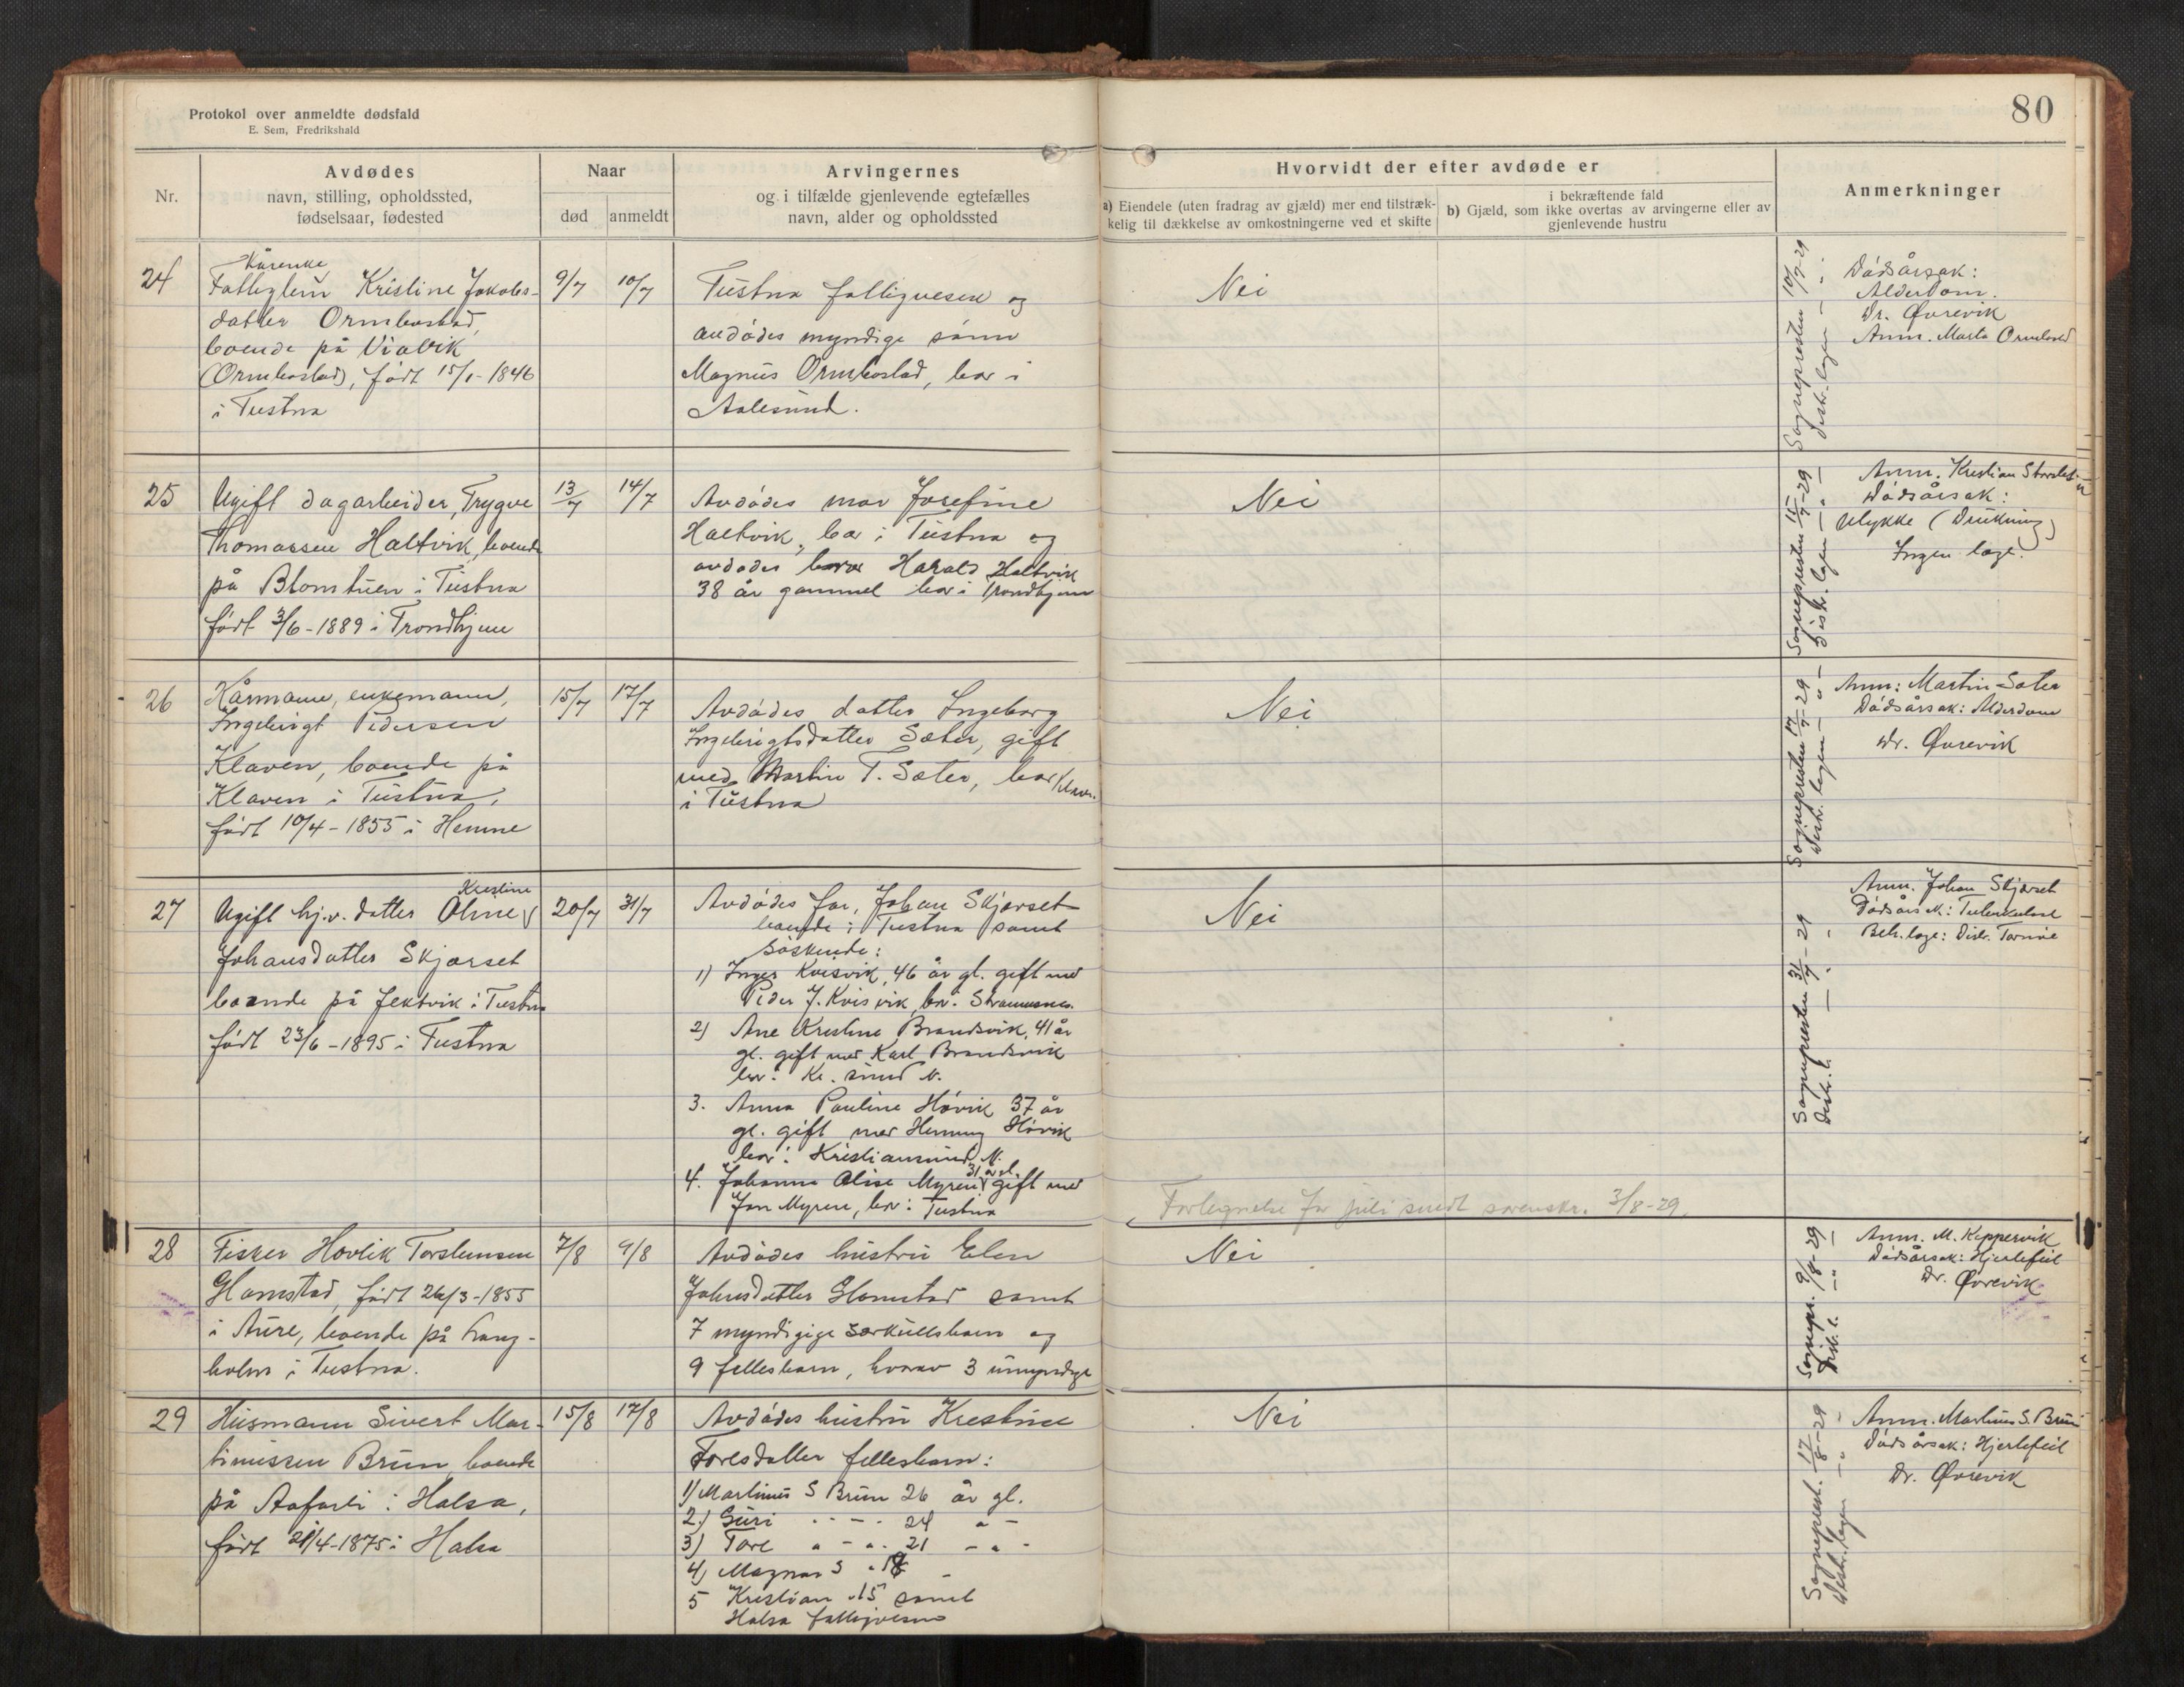 Protokol over anmeldte dødsfald
E. Sem, Fredrikshald
80
Nr.
Avdødes
navn, stilling, opholdssted,
fødselsaar, fødested
Naar
død
anmeldt
Arvingernes
og i tilfælde gjenlevende egtefælles
navn, alder og opholdssted
Hvorvidt der efter avdøde er
a) Eiendele (uten fradrag av gjæld) mer end tilstræk-
kelig til dækkelse av omkostningerne ved et skifte
i bekræftende fald
b) Gjæld, som ikke overtas av arvingerne eller av
gjenlevende hustru
Anmerkninger
24
Kårenke
Fattiglem Kristine Jakobs-
datter Ormbostad,
boende på
(Ormbostad), født 15/1-1846
i Tustna
9/7
10/7
Tustna fattigvesen og
avdødes myndige sønn
Magnus Ormbostad, bor i
Aalesund.
Nei
Sognepresten 10/7-29
Distr. legen — " -
Dødsårsak:
Alderdom.
Dr. Øvrevik
Anm. Marta Ormbostad
25
Ugift dagarbeider, Trygve
Thomassen Haltvik, boende
på Blomtuen i Tustna
født 3/6-1889 i Trondhjem
13/7
14/7
Avdødes mor Josefine
Haltvik, bor i Tustna og
avdødes bror Harald Haltvik
38 år gammel bor i Trondhjem
Nei
Sognepresten 15/7-29
Distr. legen — " —
Anm. Kristian
Dødsårsak:
Ulykke (Drukning)
Ingen læge.
26
Kårmann, enkemann,
Ingebrigt Pedersen
Klaven, boende på
Klaven i Tustna,
født 10/4-1855 i Hemne
15/7
17/7
Avdødes datter Ingeborg
Ingebrigtsdatter Sæter, gift
med Martin T. Sæter, bor Klaven
i Tustna
Nei
Sognepresten 17/7-29
Distr. legen — " —
Anm: Martin Sæter
Dødsårsak: Alderdom
Dr. Øvrevik
27
Kristine
Ugift hj.v. datter Oline
Johansdatter Skjærset
boende på Jektvik i Tustna
født 23/6-1895 i Tustna
20/7
31/7
Avdødes far, Johan Skjærset
boende i Tustna samt
søskende:
1) Inger Kvisvik, 46 år gl. gift med
Peder J. Kvisvik, bor i Straumsnes.
2) Ane Kristine Brandsvik, 41 år
gl. gift med Karl Brandsvik
bor i Kr. sund N.
3. Anna Pauline Høvik 37 år
gl. gift med Henning Høvik
bor i Kristiansund N.
31 år gl.
4. Johanna Olise Myren gift med
Jon Myren, bor i Tustna
Nei
Fortegnelse for juli sendt sorenskr. 3/8-29.
Sognepresten 31/7-29
Distr. l. — " -
Anm. Johan Skjærset
Dødsårsak: Tuberkulose
Beh. læge: Distr.
28
Fisker Hovlik Torstensen
Glamstad, født 26/3-1855
i Aure, boende på Lang-
holm i Tustna.
7/8
9/8
Avdødes hustru Elen
Johnsdatter Glamstad samt
7 myndigige særkullsbarn og
9 fellesbarn, hvorav 3 umyndige
Nei
Sognepr. 9/8-29
Distr. l. — " —
Anm. M. Keppervik
Dødsårsak: Hjertefeil
Dr. Øvrevik
29
Husmann Sivert Mar-
tinussen Brun, boende
på Aafarli i Halsa,
født 21/4-1875 i Halsa
15/8
17/8
Avdødes hustru Krestine
Toresdatter fellesbarn:
1) Martinus S Brun 26 år gl.
2) Guri " - - " 24 " -
3) Tore " - " - 21 - " -
4) Magnar S " 18 -
5 Kristian " 15 samt
Halsa fattigvesen
Nei
Sogneprest. 17/8-29
Distr. legen — " —
Anm. Martinus S. Brun
Dødsårsak: Hjertefeil
Dr. Øvrevik